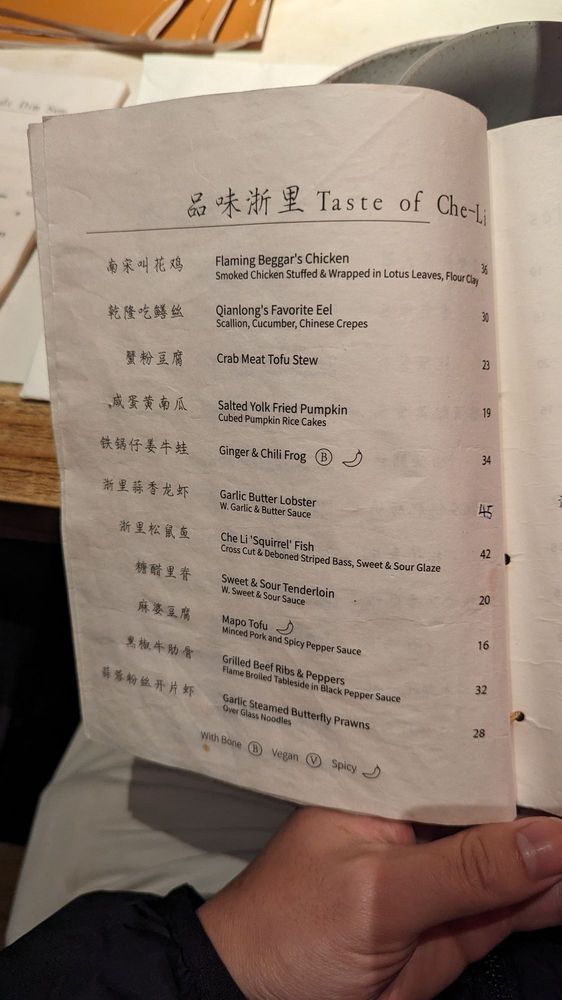 品味浙里 Taste of Che-Li
南宋叫花鸡 Flaming Beggar's Chicken 36
Smoked Chicken Stuffed & Wrapped in Lotus Leaves, Flour Clay
乾隆吃鳝丝 Qianlong's Favorite Eel 30
Scallion, Cucumber, Chinese Crepes
蟹粉豆腐 Crab Meat Tofu Stew 23
咸蛋黄南瓜 Salted Yolk Fried Pumpkin 19
Cubed Pumpkin Rice Cakes
铁锅仔姜牛蛙 Ginger & Chili Frog B 34
浙里蒜香龙虾 Garlic Butter Lobster 45
W. Garlic & Butter Sauce
浙里松鼠鱼 Che Li 'Squirrel' Fish 42
Cross Cut & Deboned Striped Bass, Sweet & Sour Glaze
糖醋里脊 Sweet & Sour Tenderloin 20
W. Sweet & Sour Sauce
麻婆豆腐 Mapo Tofu 16
Minced Pork and Spicy Pepper Sauce
黑椒牛肋骨 Grilled Beef Ribs & Peppers 32
Flame Broiled Tableside in Black Pepper Sauce
蒜蓉粉丝开片虾 Garlic Steamed Butterfly Prawns 28
Over Glass Noodles
With Bone B Vegan V Spicy